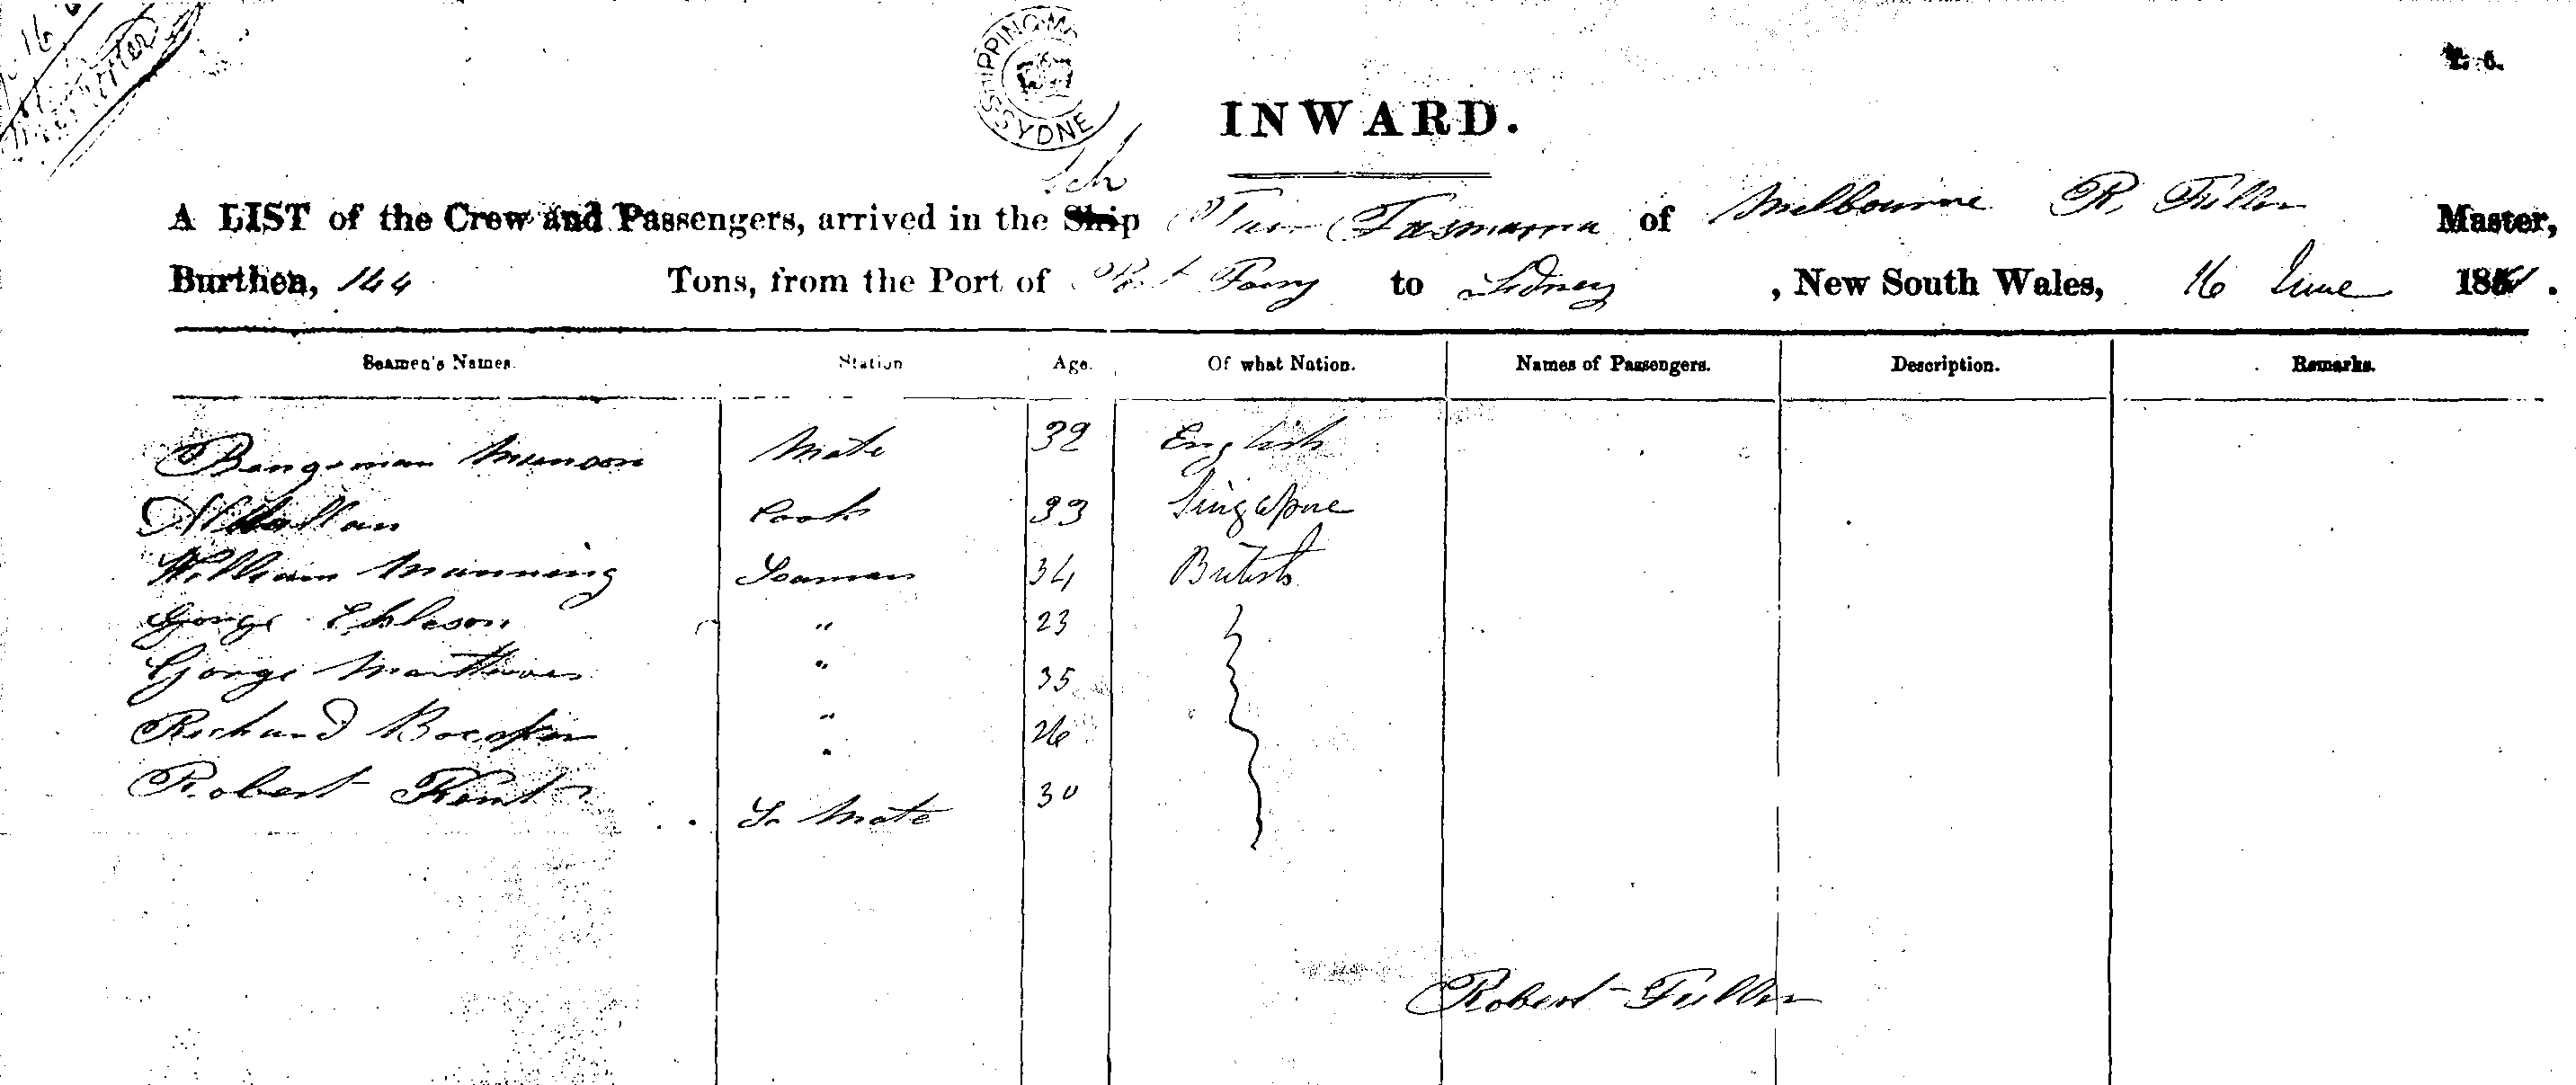 16
SHIPPING MA
SYDNE
INWARD.
Sch
A LIST of the Crew and Passengers, arrived in the Ship Tasmania of Melbourne R. Fuller Master,
Burthen, 144 Tons, from the Port of to Sidney, New South Wales, 16 June 1861.
Seamen's Names. Station Age. Of what Nation. Names of Passengers. Description. Remarks.
Bengeman Munson Mate 32 English
Cook 33 Singapore
William Manning Seaman 34 British
George " 23
George Matthews " 35
Richard " 26
Robert Kent " 30
Sn Mate
Robert Fuller